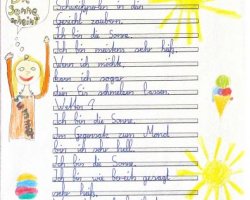 Die
Sonne
scheint!
Schweißperlen in dein
Gesicht zaubern.
Ich bin die Sonne.
Ich bin meistens sehr heiß.
Wenn ich möchte,
kann ich sogar
dein Eis schmelzen lassen.
Wetten?
Ich bin die Sonne.
Im Gegensatz zum Mond
bin ich sehr hell.
Ich bin die Sonne.
Ich bin wie bereits gesagt
sehr heiß.